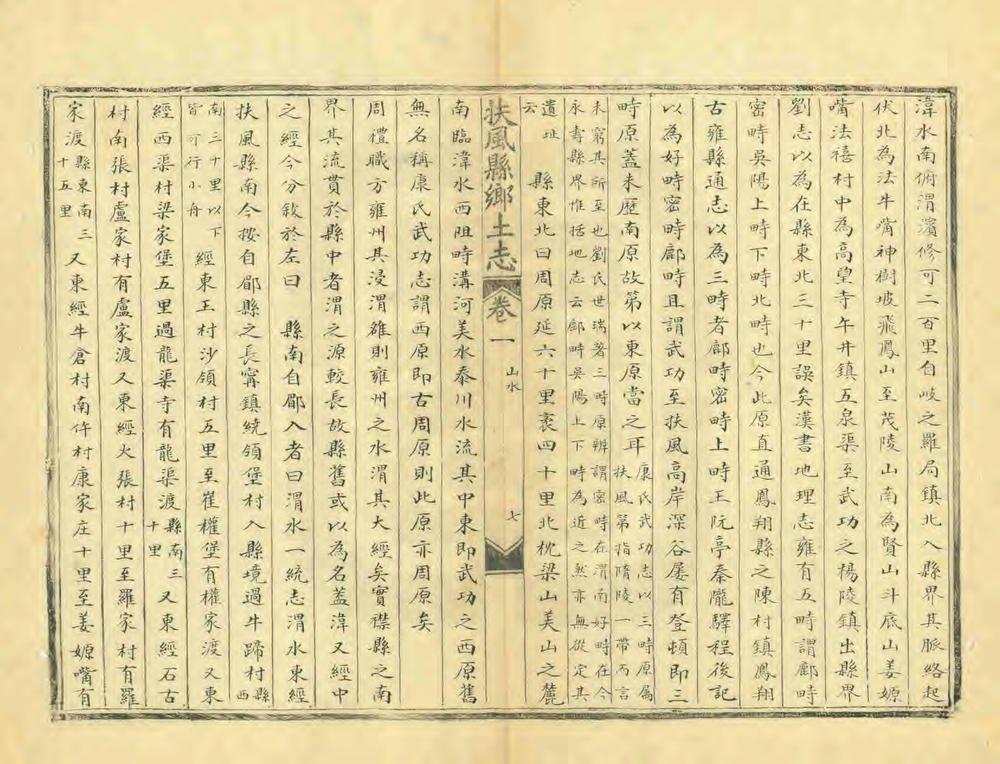 湋水南俯渭濱修可二百里自岐之羅局鎮北入縣界其脈絡起
伏北為法牛嘴神樹坡飛鳳山至茂陵山南為賢山斗底山姜嫄
嘴法禧村中為高皇寺午井鎮五泉渠至武功之楊陵鎮出縣界
劉志以為在縣東北三十里誤矣漢書地理志雍有五畤謂鄜畤
密畤吳陽上畤下畤北畤也今此原直通鳳翔縣之陳村鎮鳳翔
古雍縣通志以為三畤者鄜畤密畤上畤王阮亭秦隴驛程後記
以為好畤密畤鄜畤且謂武功至扶風高岸深谷屡有登頓即三
畤原蓋未歴南原故第以東原當之耳康氏武功志以三畤原屬
扶風第指隋陵一帶而言
未窮其所至也劉氏世瑞著三畤原辨謂密畤在渭南好畤在今
永壽縣界惟括地志云鄜畤吳陽上下畤為近之然亦無從定其
遺址
云
縣東北曰周原延六十里袤四十里北枕梁山美山之麓
扶風縣鄉土志 卷一
山水
七
南臨湋水西阻畤溝河美水泰川水流其中東即武功之西原舊
無名稱康氏武功志謂西原即古周原則此原亦周原矣
周禮職方雍州其浸渭雒則雍州之水渭其大經矣實襟縣之南
界其流貫於縣中者渭之源較長故縣舊或以為名蓋湋又經中
之經今分敘於左曰 縣南自郿入者曰渭水一統志渭水東經
扶風縣南今按自郿縣之長寧鎮繞領堡村入縣境過牛蹄村縣
西
南三十里以下
皆可行小舟
經東王村沙領村五里至崔權堡有權家渡又東
經西渠村梁家堡五里過龍渠寺有龍渠渡縣南三
十里
又東經石古
村南張村盧家村有盧家渡又東經火張村十里至羅家村有羅
家渡縣東南三
十五里
又東經牛倉村南仵村康家庄十里至姜嫄嘴有